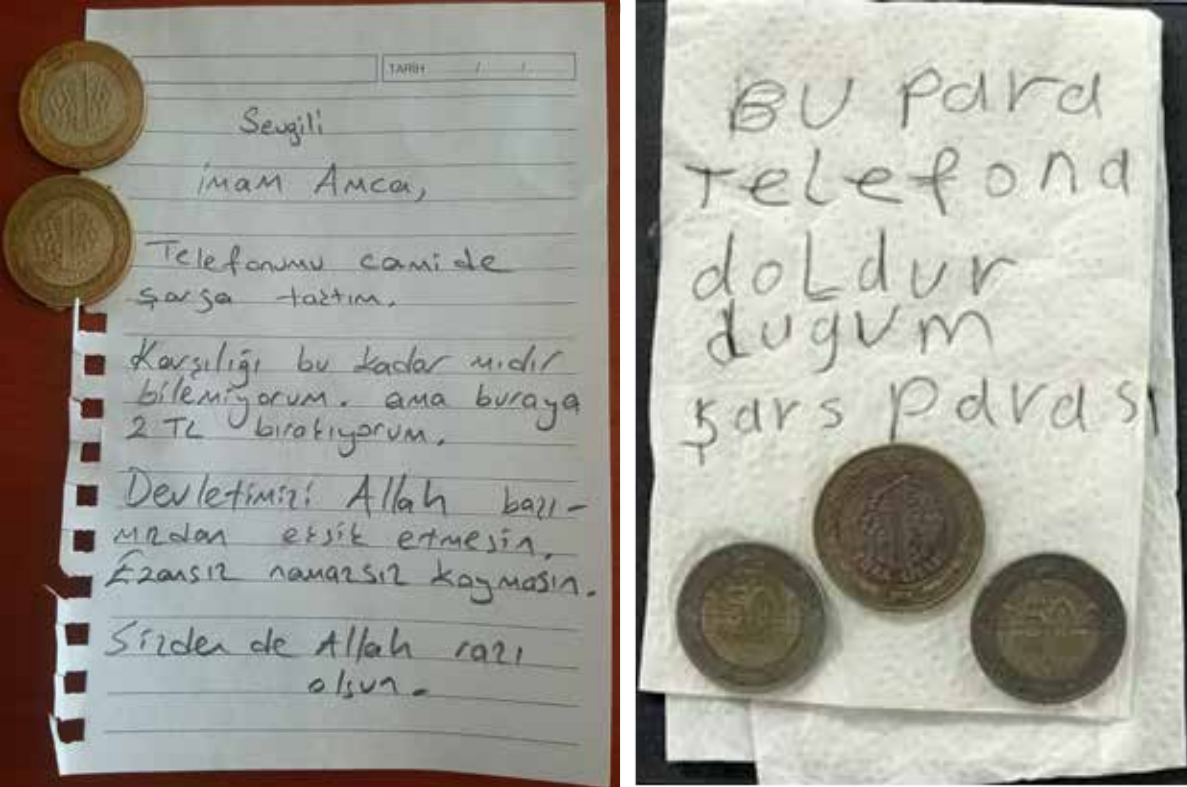 TARİH / /
Sevgili
imam Amca,
Telefonumu camide
şarşa taktım.
Karşılığı bu kadar mıdır
bilemiyorum. ama buraya
2 TL bırakıyorum.
Devletimizi Allah başı-
mızdan eksik etmesin.
Ezansız namazsız koymasın.
Sizden de Allah razı
olsun.
BU para
Telefona
doLdur
dugum
şars parası
50
50